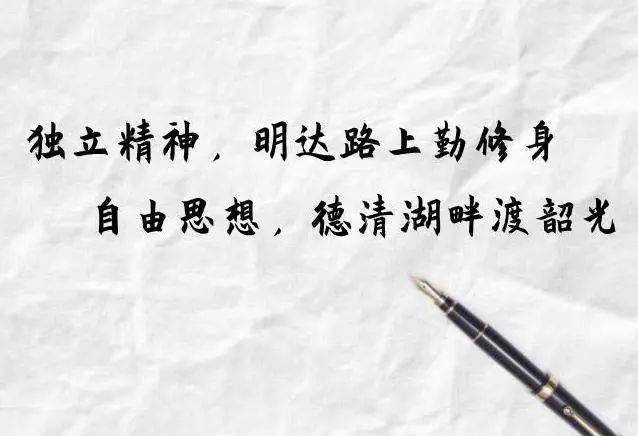 独立精神，明达路上勤修身
自由思想，德清湖畔渡韶光